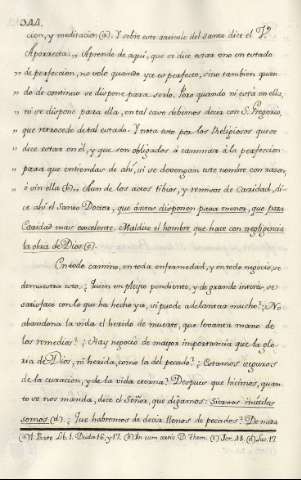 344.
cion, y meditacion (a). Y sobre este articulo del santo dice el V.e
Aparecta: „ Aprende de aquí, que se dice estar uno en estado
„ de perfeccion, no solo quando ya es perfecto, sino tambien quan-
„ do de continuo se dispone para serlo. Pero quando ni está en ella,
„ ni se dispone para ella, en tal caso debemos decir con S. Gregorio,
„ que retrocede de tal estado. Y nota esto por los Religiosos que se
„ dice estar en él, y que son obligados á caminar á la perfeccion:
„ para que entiendas de ahí, si se devengan este nombre con razon,
„ ó sin ella (b). Aun de los actos tibios, y remisos de Caridad, di-
ce ahí el Santo Doctor, que ántes disponen para menor, que para
Caridad mas excelente. Maldito el hombre que hace con negligencia
la obra de Dios (c).
En todo camino, en toda enfermedad, y en todo negocio, se
demuestra esto. ¿Quien en pleyto pendiente, y de grande interes se
satisface con lo que ha hecho ya, si puede adelantar mucho? ¿No
abandona la vida el herido de muerte, que levanta mano de
los remedios? ¿Hay negocio de mayor importancia que la glo-
ria de Dios, ni herida, como la del pecado? ¿Estamos seguros
de la curacion, y de la vida eterna? Despues que hicimos, quan-
to se nos manda, dice el Señor, que digamos: siervos inutiles
somos (d). ¿Que habremos de decir llenos de pecados? De nada
(a) Lib. 1. Dist. 16. y 17. (b) In com. D. Thom. (c) Jer. 48. (d) Luc. 17.